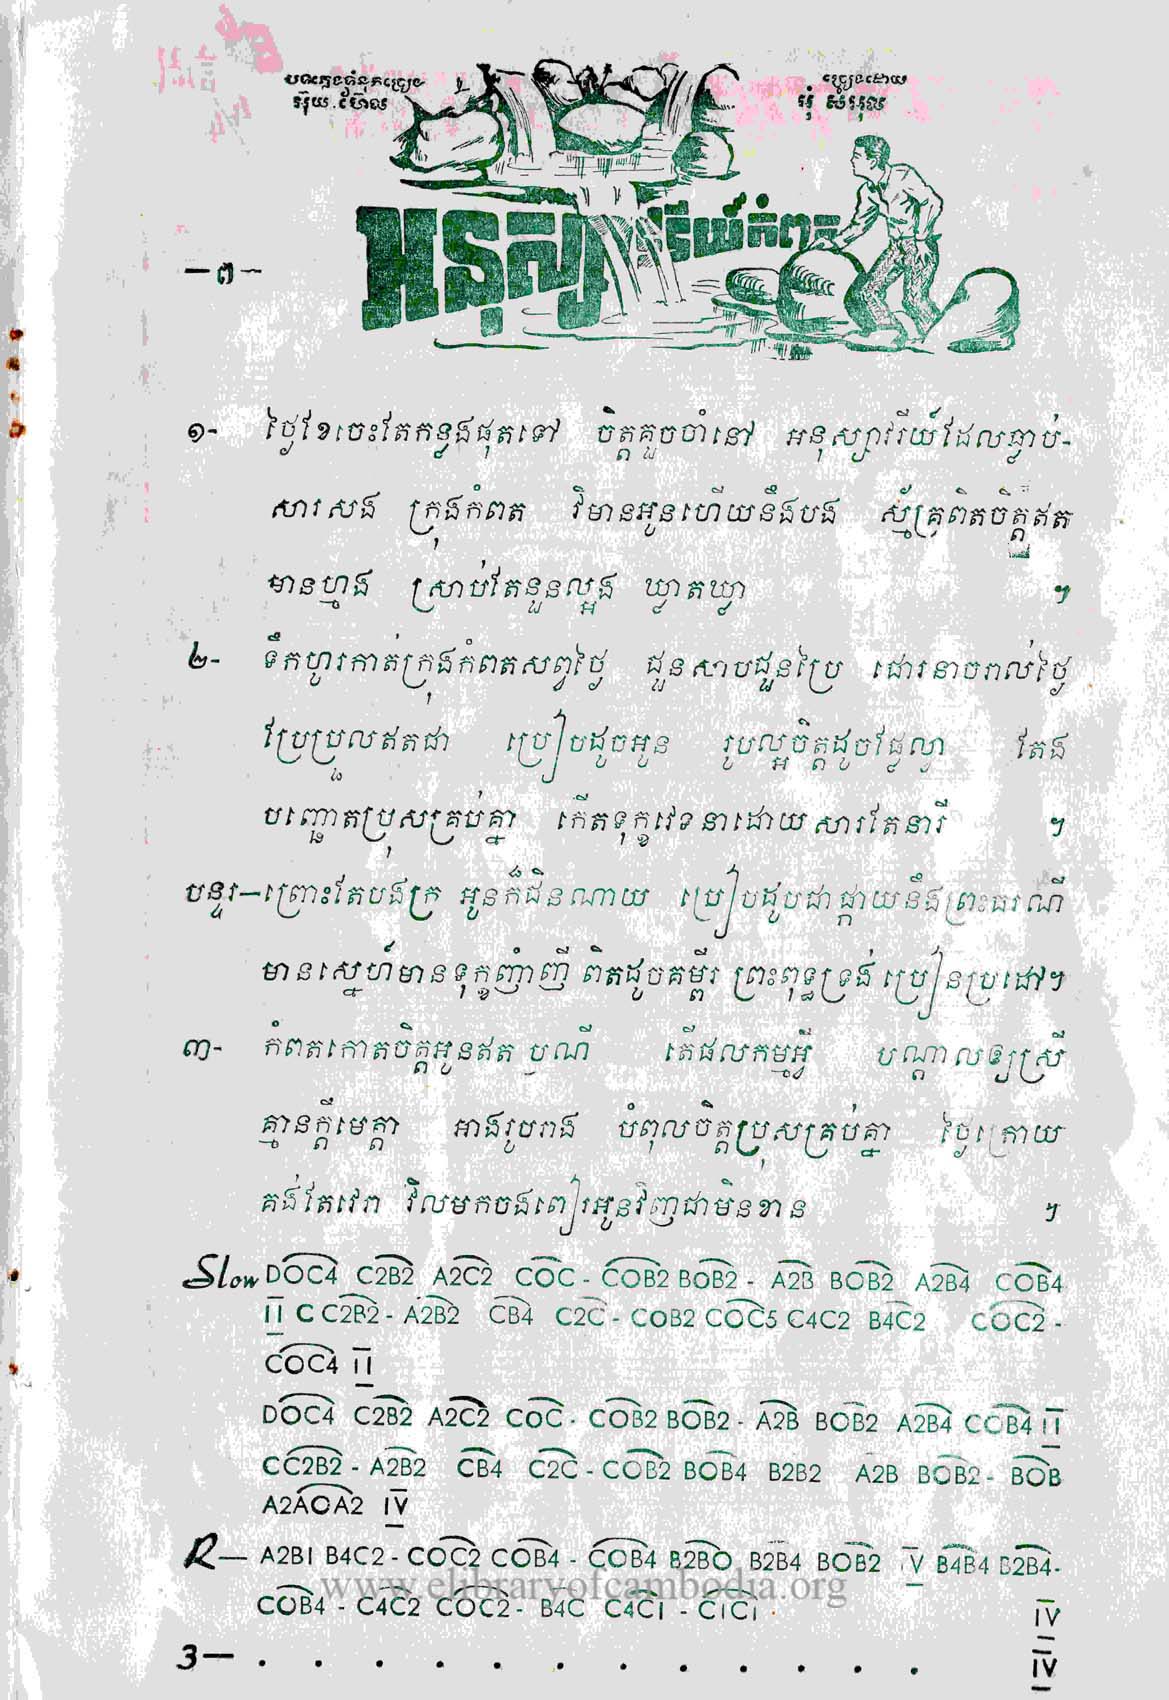 បទភ្លេងទំនុកច្រៀង
អ៊ុយ. ហ៊ែល
ច្រៀងដោយ
អ៊ុំ សំអុល
អនុស្សាវរីយ៍កំពត
—៣—
១- ថ្ងៃខែចេះតែកន្លងផុតទៅ ចិត្តគួចចាំនៅ អនុស្សាវរីយ៍ដែលធ្លាប់-
សារសង ក្រុងកំពត វិមានអូនហើយនឹងបង ស្ម័គ្រពិតចិត្តឥត
មានហ្មង ស្រាប់តែនួនល្អង ឃ្លាតឃ្លា ៗ
២- ទឹកហូរកាត់ក្រុងកំពតសព្វថ្ងៃ ជួនសាបជួនប្រៃ ជោរនាចរាល់ថ្ងៃ
ប្រែប្រួលឥតជា ប្រៀបដូចអូន រូបល្អចិត្តដូចផ្លែល្វា តែង
បញ្ឆោតប្រុសគ្រប់គ្នា កើតទុក្ខវេទនាដោយសារតែនារី ៗ
បន្ទរ—ព្រោះតែបងក្រ អូនក៏ជិនណាយ ប្រៀបដូបជាផ្កាយនឹងព្រះធរណី
មានស្នេហ៍មានទុក្ខញាំញី ពិតដូចគម្ពីរ ព្រះពុទ្ធទ្រង់ប្រៀនប្រដៅៗ
៣- កំពតកោតចិត្តអូនឥតប្រណី តើផលកម្មអ្វី បណ្តាលឲ្យស្រី
គ្មានក្តីមេត្តា អាងរូបរាង បំពុលចិត្តប្រុសគ្រប់គ្នា ថ្ងៃក្រោយ
គង់តែវេរា វិលមកចងពៀរអូនវិញជាមិនខាន ៗ
Slow DOC4 C2B2 A2C2 COC - COB2 BOB2 - A2B BOB2 A2B4 COB4
II C C2B2 - A2B2 CB4 C2C - COB2 COC5 C4C2 B4C2 COC2 -
COC4 II
DOC4 C2B2 A2C2 COC - COB2 BOB2 - A2B BOB2 A2B4 COB4 II
CC2B2 - A2B2 CB4 C2C - COB2 BOB4 B2B2 A2B BOB2 - BOB
A2AOA2 IV
R— A2B1 B4C2 - COC2 COB4 - COB4 B2BO B2B4 BOB2 IV B4B4 B2B4-
COB4 - C4C2 COC2 - B4C C4C1 - C1C1 IV
3— . . . . . . . . . . . . IV
www.elibraryofcambodia.org